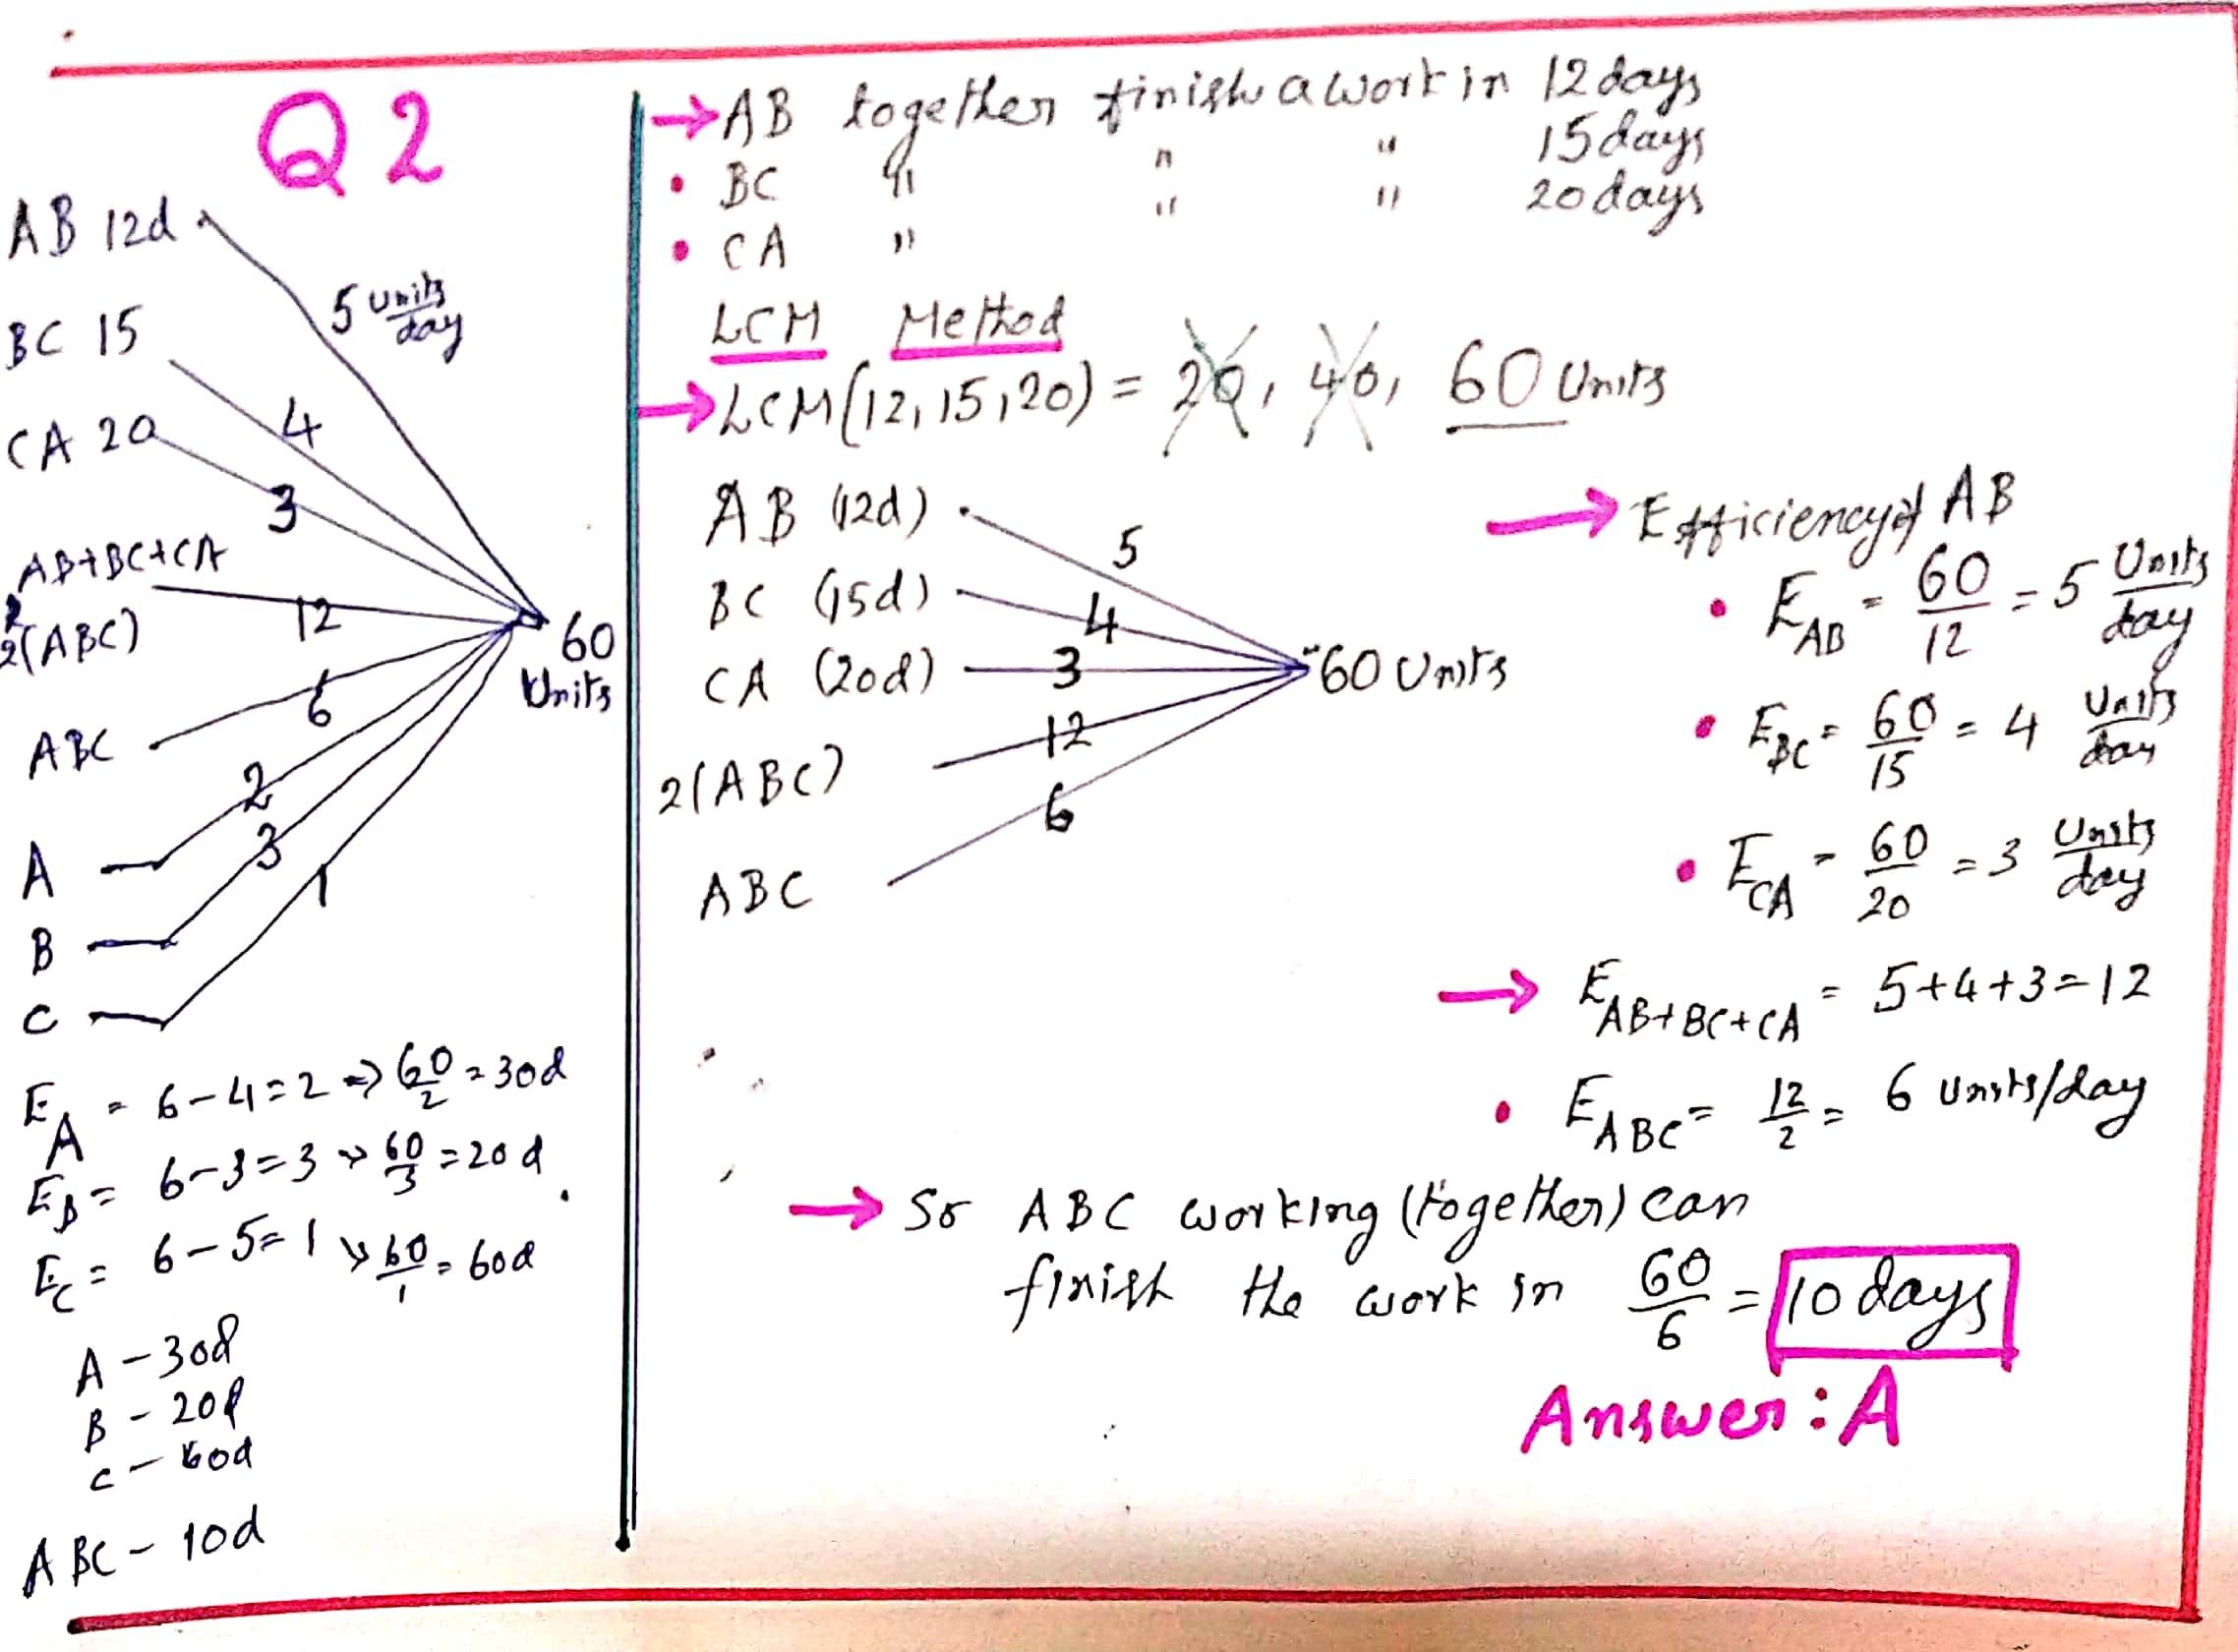 Q2
AB 12d
5 Units/day
BC 15
4
CA 20
3
AB+BC+CA
12
2(ABC)
60
Units
6
ABC
2
A
3
1
B
C
E_A = 6-4=2 => 60/2 = 30d
E_B = 6-3=3 => 60/3 = 20d
E_C = 6-5=1 => 60/1 = 60d
A - 30d
B - 20d
C - 60d
ABC - 10d
→ AB together finish a work in 12 days
• BC " " " 15 days
• CA " " " 20 days
LCM Method
→ LCM(12,15,20) = 20, 40, 60 Units
AB (12d)
5
BC (15d)
4
CA (20d) 3 60 Units
12
2(ABC)
6
ABC
→ Efficiency of AB
• E_AB = 60/12 = 5 Units/day
• E_BC = 60/15 = 4 Units/day
• E_CA = 60/20 = 3 Units/day
→ E_AB+BC+CA = 5+4+3=12
• E_ABC = 12/2 = 6 Units/day
→ So ABC working (together) can
finish the work in 60/6 = 10 days
Answer: A